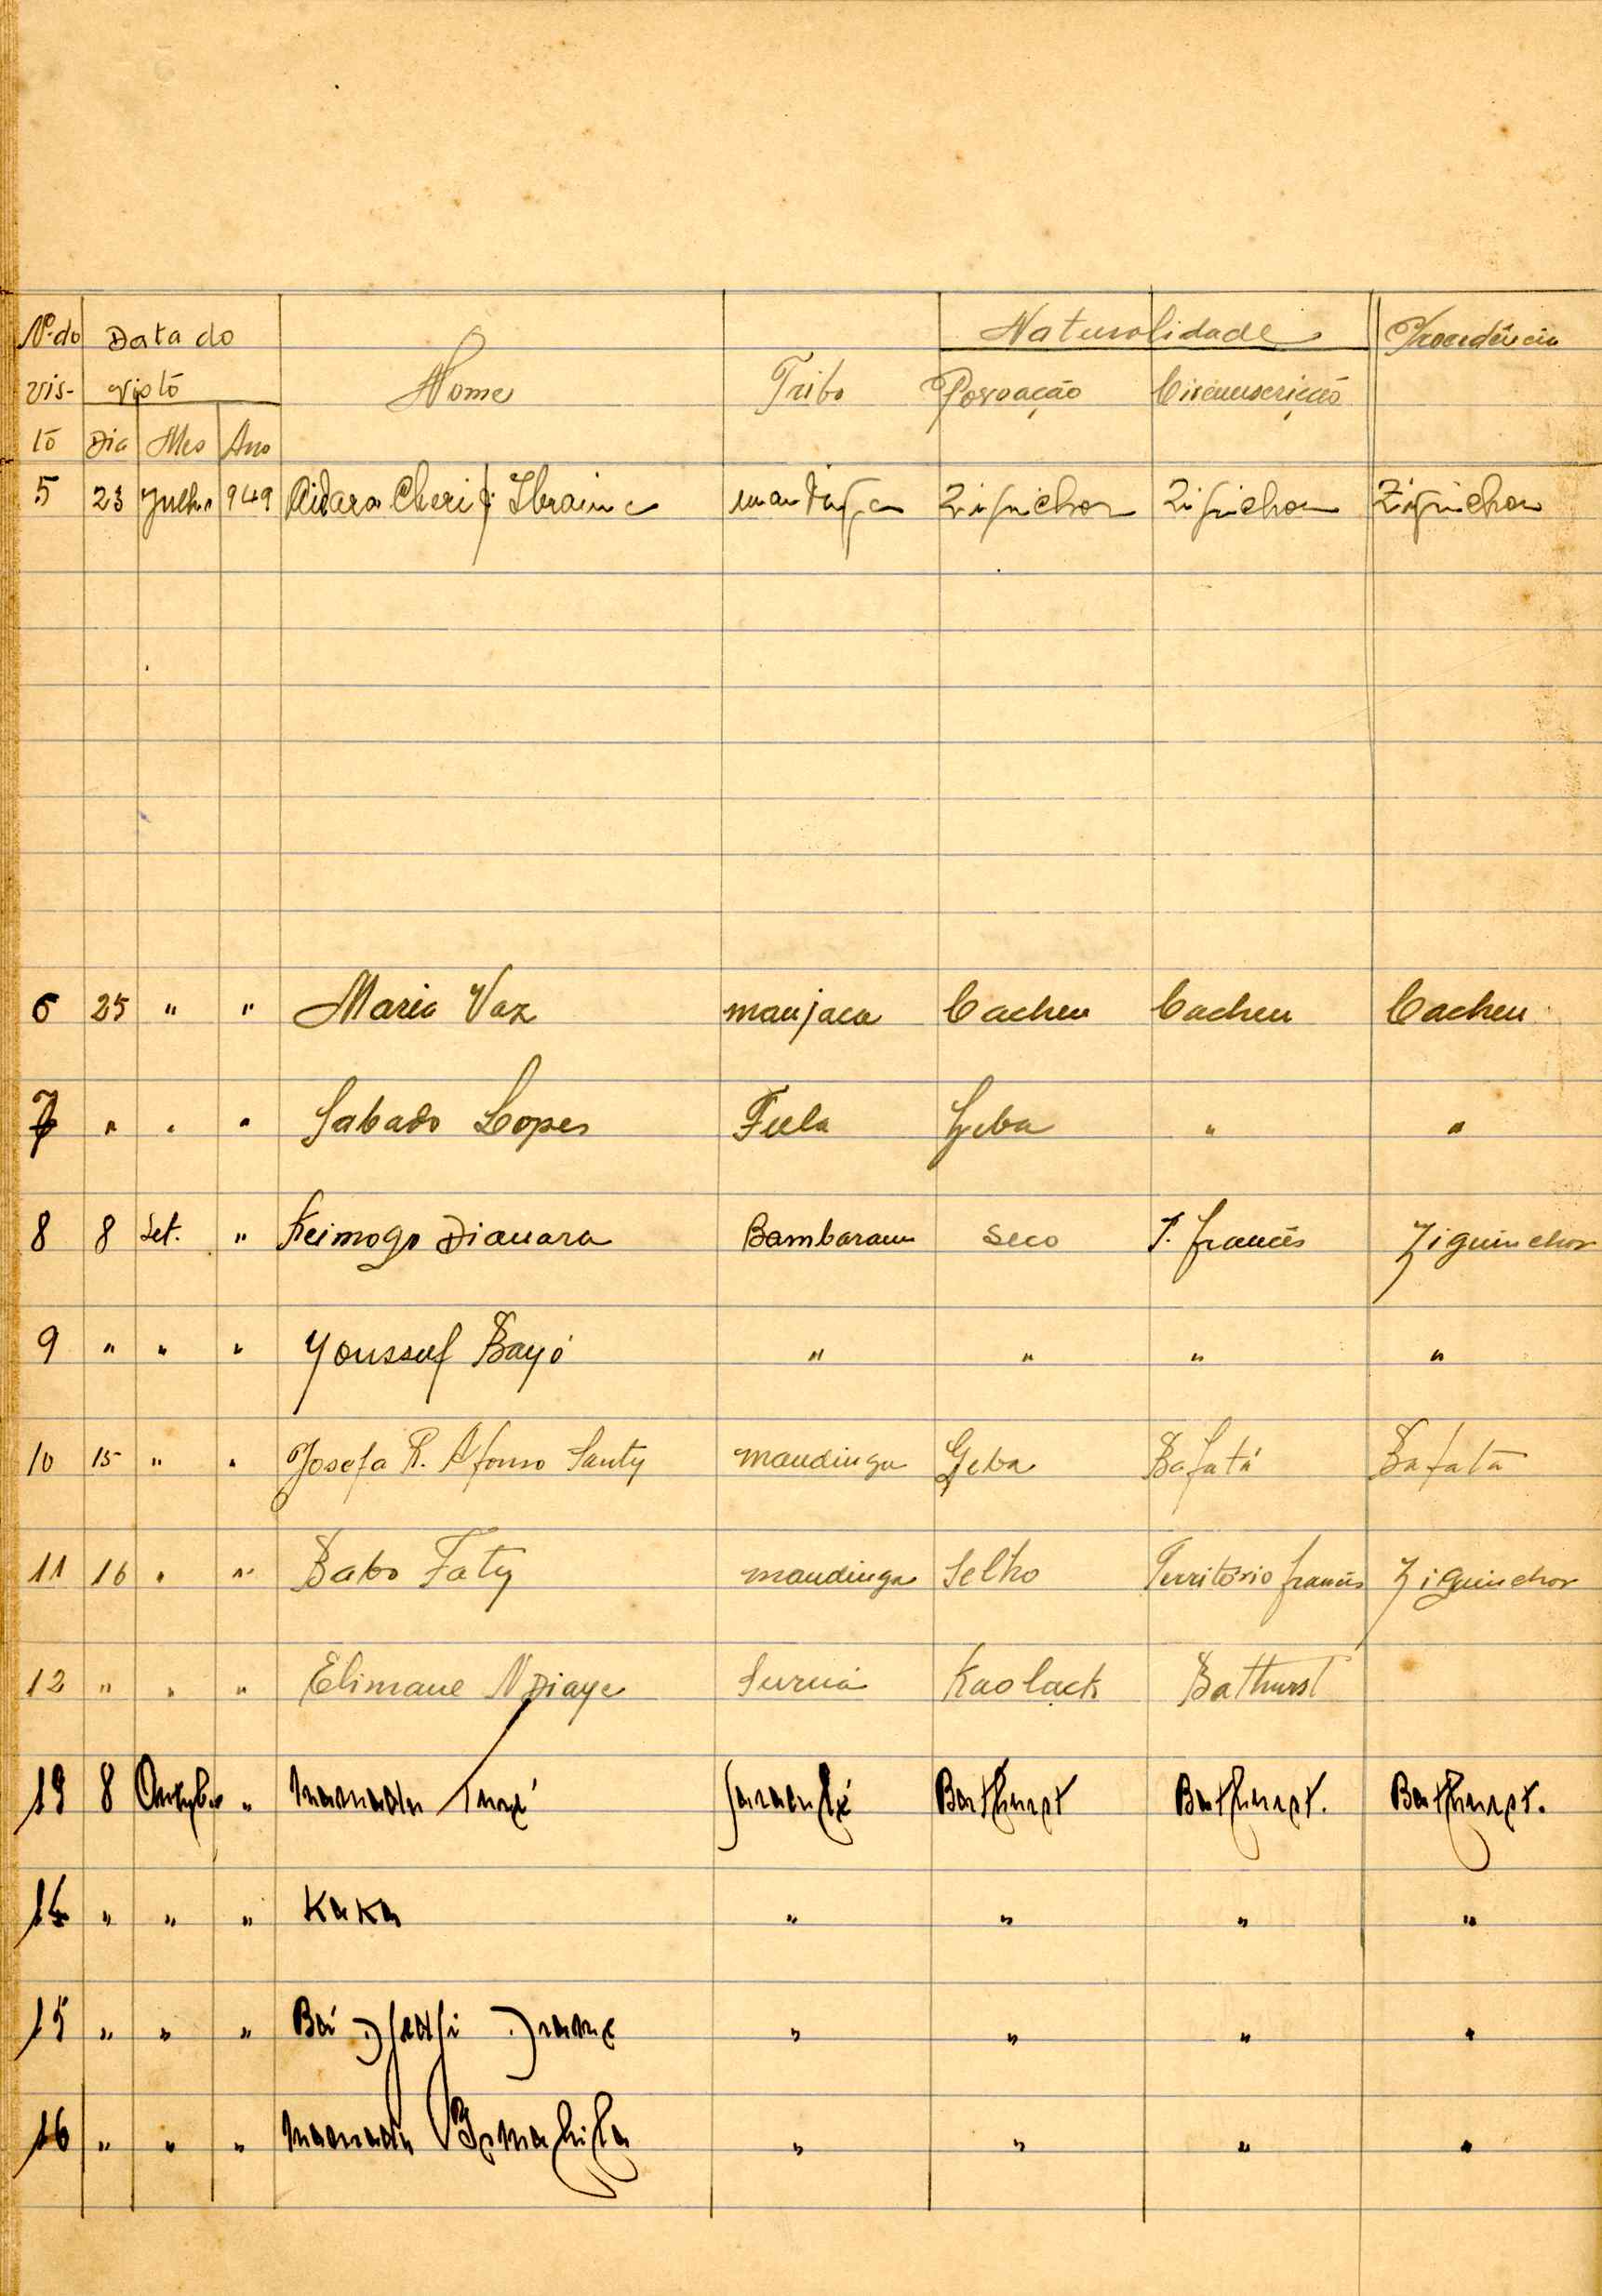 Nº do Data do Naturalidade Procedência
vis- visto Nome Tribo Povoação Circunscrição
to Dia Mes Ano
5 23 Julho 949 Aidara Cherif Ibraima mandinga Ziguichor Ziguichor Ziguichor
6 25 " " Maria Vaz manjaca Cacheu Cacheu Cacheu
7 " " " Sabado Lopes Fula Geba " "
8 8 Set. " Keimogo Dianara Seco T. francês Ziguinchor
9 " " " Youssuf Bayó " " " "
10 15 " " Josefa R. Afonso Santy mandinga Geba Bafatá Bafatá
11 16 " " Babo Faty mandinga Selho Território francês Ziguinchor
12 " " " Elimane NDiaye Kaolack Bathurst
13 8 Outubro " Mamadu Turé Bathurst Bathurst. Bathurst.
14 " " " Kaka " " " "
15 " " " Bá " " " "
16 " " " Mamadu " " " "